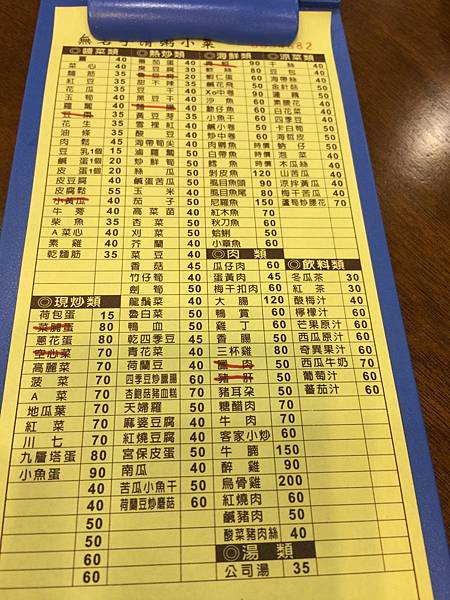 無名子清粥小菜
◎醬菜類
菜心 40
麵筋 35
紅豆 35
花瓜 35
玉筍 40
蘿蔔 40
豆棗 40
花生 35
油條 35
肉鬆 45
豆乳1個 15
鹹蛋1個 20
皮蛋1個 20
皮豆腐 40
皮腐鬆 55
小黃瓜 40
牛蒡 40
柴魚 35
A菜心 40
素雞 40
乾麵筋 35
◎現炒類
荷包蛋 15
菜脯蛋 80
蔥花蛋 80
空心菜 70
高麗菜 70
菠菜 70
A菜 70
地瓜葉 70
紅菜 70
川七 70
九層塔蛋 80
小魚蛋 90
◎熱炒類
番茄蛋 40
豆腐 30
魯豆腐 20
甜不辣 35
豆干 40
黑豆干 40
黃豆芽 35
雪裡紅 40
酸豆 40
海帶筍尖 40
滷蘿蔔 50
炒鮮筍 50
絲瓜 50
鹹蛋苦瓜 50
玉米 40
茄子 50
高菜苗 40
杏菜 50
刈菜 50
芥蘭 40
菜豆 40
香菇 45
竹仔筍 40
劍筍 50
龍鬚菜 40
魯白菜 50
鴨血 40
乾四季豆 45
青花菜 40
荷蘭豆 40
四季豆炒臘腸 60
杏鮑菇豬血糕 70
天婦羅 50
麻婆豆腐 40
紅燒豆腐 40
宮保皮蛋 50
南瓜 40
苦瓜小魚干 50
荷蘭豆炒蘑菇 60
◎海鮮類
蝦仁蛋 50
鹹花飛 50
xo中卷 90
沙魚 50
勳仔魚 50
小魚干 50
鹹小卷 50
炒中卷 50
肉鯽魚 50
白帶魚 50
鱈魚 50
剝皮魚 120
虱目魚頭 90
虱目魚尾 80
尼羅魚 150
紅木魚 70
秋刀魚 60
蛤蜊 50
小章魚 60
◎肉類
瓜仔肉 60
蛋黃肉 45
梅干扣肉 60
大腸 120
鴨賞 60
雞丁 60
香腸 50
三杯雞 80
臘肉 50
豬肝 50
豬耳朵 50
糖醋肉 70
牛肉 70
客家小炒 60
牛腩 150
醉雞 90
烏骨雞 200
紅燒肉 60
鹹豬肉 50
酸菜豬肉絲 40
◎湯類
公司湯 35
◎涼菜類
豆包 40
海帶絲 40
金針菇 50
蓮藕 50
素腰花 40
白花菜 40
四季豆 40
卡白筍 50
海哲皮 50
蚋仔 50
泡菜 40
木瓜絲 40
山苦瓜 40
涼拌黃瓜 40
梅干苦瓜 40
蘆筍炒腰花 70
◎飲料類
冬瓜茶 30
紅茶 30
酸梅汁 40
檸檬汁 60
芒果原汁 60
西瓜原汁 50
奇異果汁 60
西瓜牛奶 70
葡萄汁 60
蕃茄汁 60